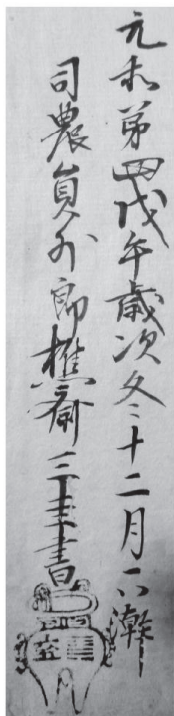 元和第四戊午歳次冬十二月下澣
司農員外郎樵斎三圭書